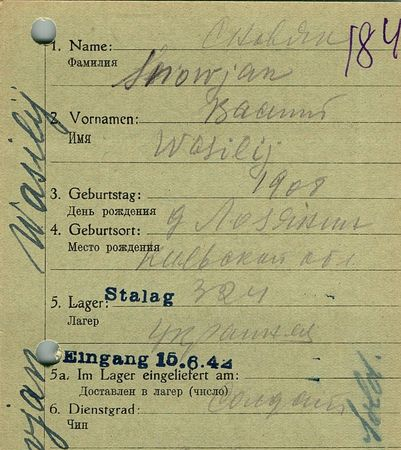 184
1. Name:
Фамилия
Snowjan
2. Vornamen: Васили
Имя
Wasilij
3. Geburtstag: 1908
День рождения
4. Geburtsort: д
Место рождения
обл
5. Lager: Stalag 324
Лагерь
Eingang 15.6.42
5a. Im Lager eingeliefert am:
Доставлен в лагерь (число)
6. Dienstgrad: Солдат
Чин
Wasilij
Sold.